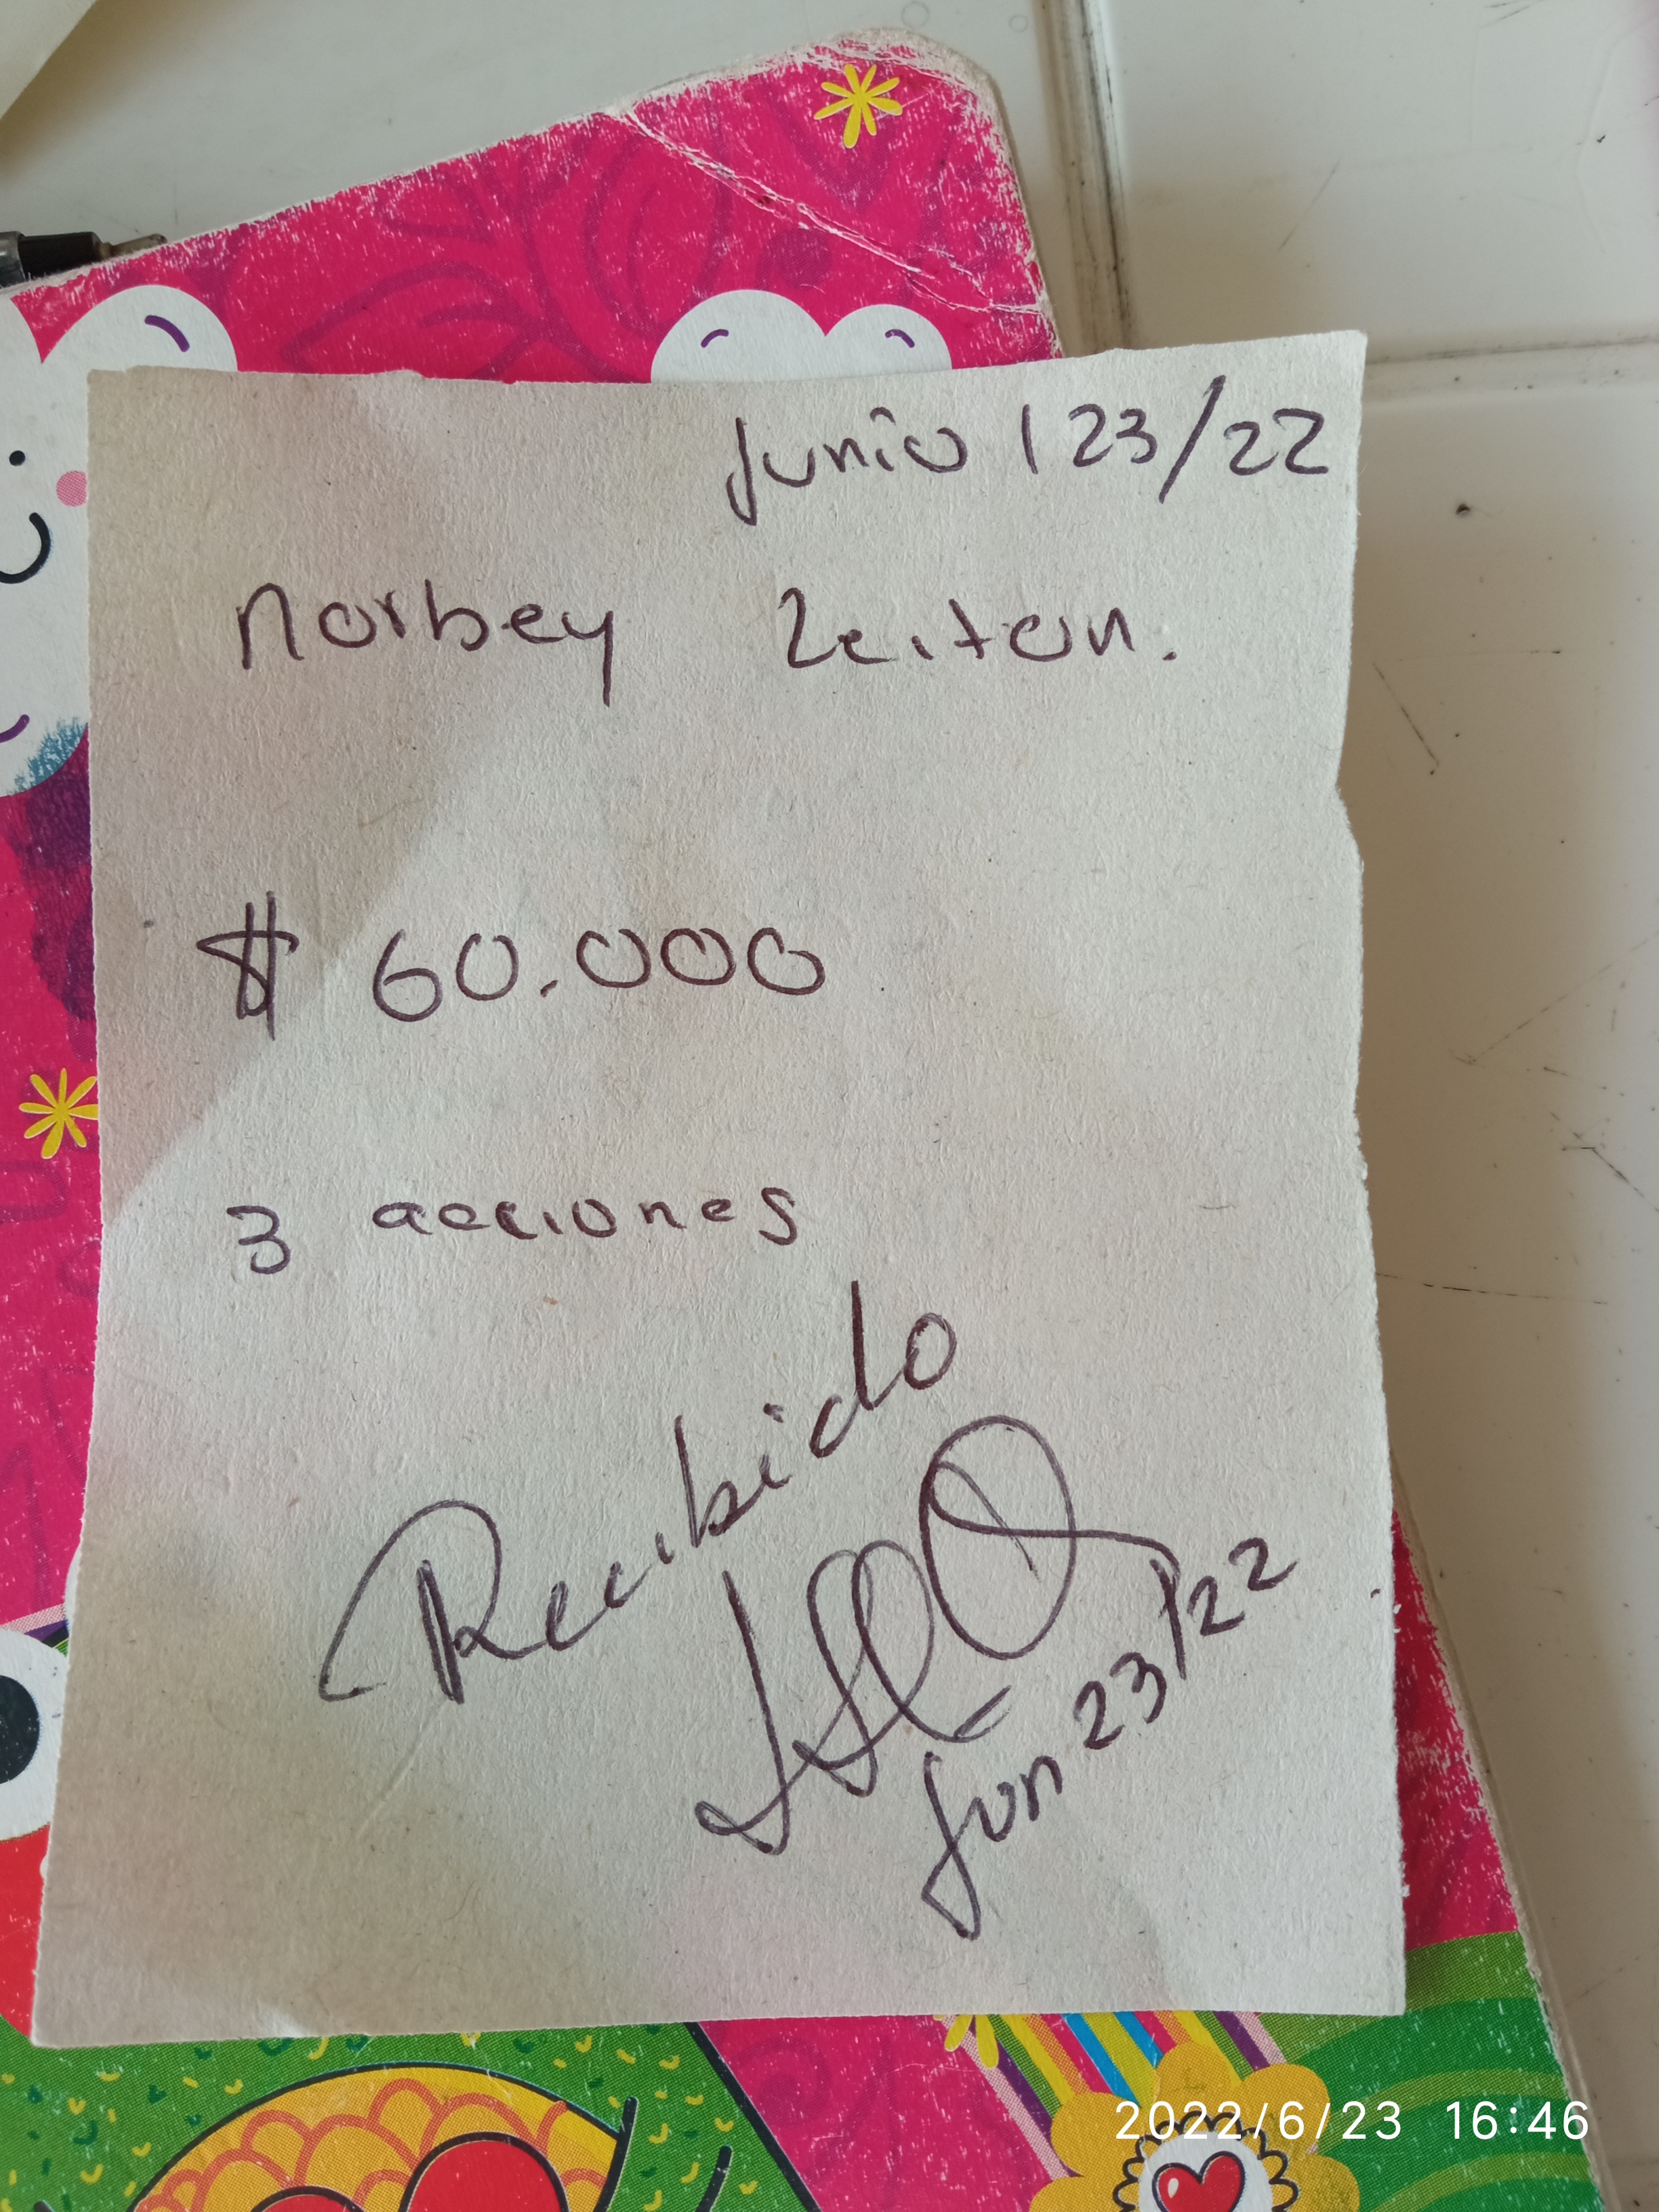 Junio / 23/22
Norbey Leiton.
$ 60.000
3 acciones
Recibido
Jun 23/22
2022/6/23 16:46